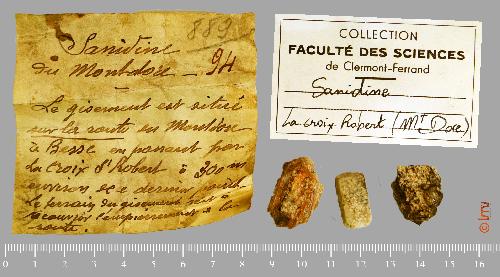 889
Sanidine
du Montdore - 94
Le gisement est situé
sur la route du Montdore
à Besse en passant par
la croix d'Robert à 300m
environ de ce dernier point.
Le terrain du gisement sert à
route.
COLLECTION
FACULTÉ DES SCIENCES
de Clermont-Ferrand
Sanidine
La Croix Robert (Mt Dore)
0 1 2 3 4 5 6 7 8 9 10 11 12 13 14 15 16